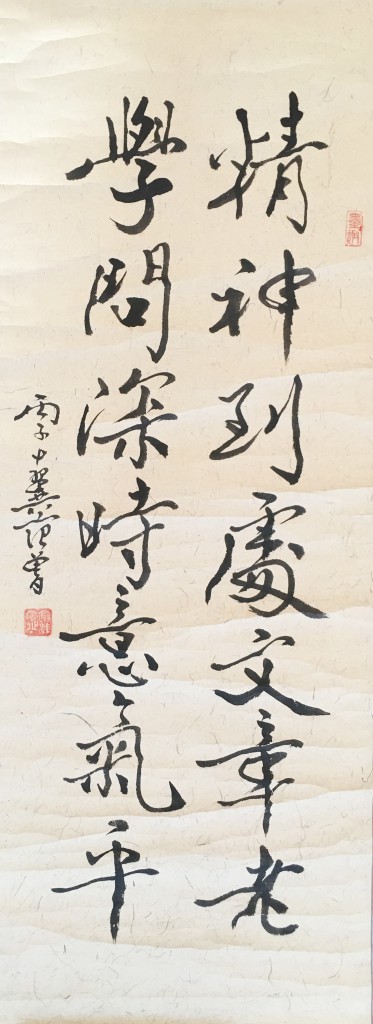 精神到處文章老
學問深時意氣平
丙子十翼範曾